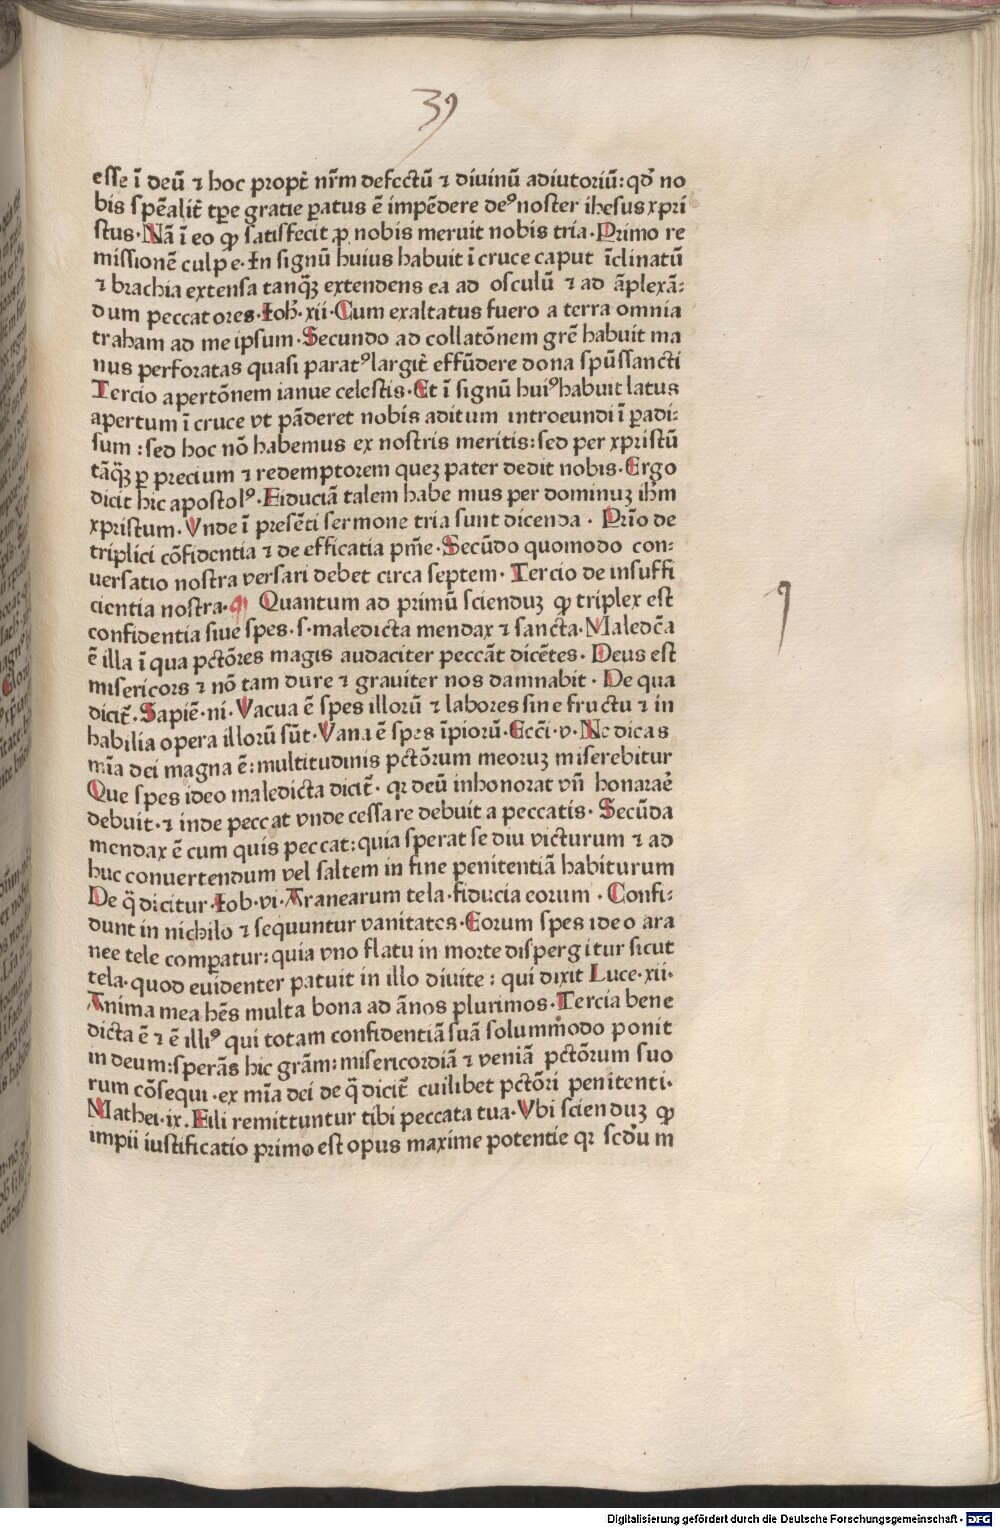 39
esse ī deū ⁊ hoc propt̄ nr̄m defectū ⁊ diuinū adiutoriū: qd̄ no
bis spēalit̄ tꝑe gratie ꝑatus ē impēdere deꝰ noster ihesus xpri
stus· Nā ī eo ꝙ satisfecit ꝓ nobis meruit nobis tria· Primo re
missionē culpe· In signū huius habuit ī cruce caput īclinatū
⁊ brachia extensa tanqꝫ̄ extendens ea ad osculū ⁊ ad āplexā:
dum peccatores· Ioh̄· xii· Cum exaltatus fuero a terra omnia
traham ad me ipsum· Secundo ad collatōnem grē habuit ma
nus perforatas quasi paratꝰ largit̄ effūdere dona spūssancti
Tercio apertōnem ianue celestis· Et ī signū huiꝰ habuit latus
apertum ī cruce vt pāderet nobis aditum introeundi ī ꝑadi:
sum: sed hoc nō habemus ex nostris meritis: sed per xpristū
tāqꝫ̄ ꝑ precium ⁊ redemptorem quez pater dedit nobis· Ergo
dicit hic apostolꝰ· Fiduciā talem habe mus per dominuz ih̄m
xpristum· Vnde ī presēti sermone tria sunt dicenda· Prīo de
triplici cōfidentia ⁊ de efficatia pm̄e· Secūdo quomodo con:
uersatio nostra versari debet circa septem· Tercio de insuffi
cientia nostra· ¶ Quantum ad primū scienduz ꝙ triplex est
confidentia siue spes· s· maledicta mendax ⁊ sancta· Maledc̄a
ē illa ī qua pctōres magis audaciter peccāt dicētes· Deus est
misericors ⁊ nō tam dure ⁊ grauiter nos damnabit· De qua
dicit̄· Sapiē· ni· Vacua ē spes illorū ⁊ labores sine fructu ⁊ in
habilia opera illorū sūt· Vana ē spes īpiorū· Eccī· v· Ne dicas
mīa dei magna ē: multitudinis pctōrum meoruz miserebitur
Que spes ideo maledicta dicit̄· qr deū inhonorat vn̄ honorar̄e
debuit· ⁊ inde peccat vnde cessare debuit a peccatis· Secūda
mendax ē cum quis peccat: quia sperat se diu victurum ⁊ ad
huc conuertendum vel saltem in fine penitentiā habiturum
De q̄ dicitur Iob· vi· Aranearum tela· fiducia eorum· Confi:
dunt in nichilo ⁊ sequuntur vanitates· Eorum spes ideo ara
nee tele comꝑatur: quia vno flatu in morte dispergitur sicut
tela· quod euidenter patuit in illo diuite: qui dixit Luce· xii·
Anima mea hēs multa bona ad ānos plurimos· Tercia bene
dicta ē ⁊ ē illiꝰ qui totam confidentiā suā solummodo ponit
in deum: sperās hic grām: misericordiā ⁊ veniā pctōrum suo
rum cōsequi· ex mīa dei de q̄ dicit̄ cuilibet pctōri penitenti·
Mathei· ix· Fili remittuntur tibi peccata tua· Vbi scienduz ꝙ
impii iustificatio primo est opus maxime potentie qr scd̄u m
Digitalisierung gefördert durch die Deutsche Forschungsgemeinschaft · DFG